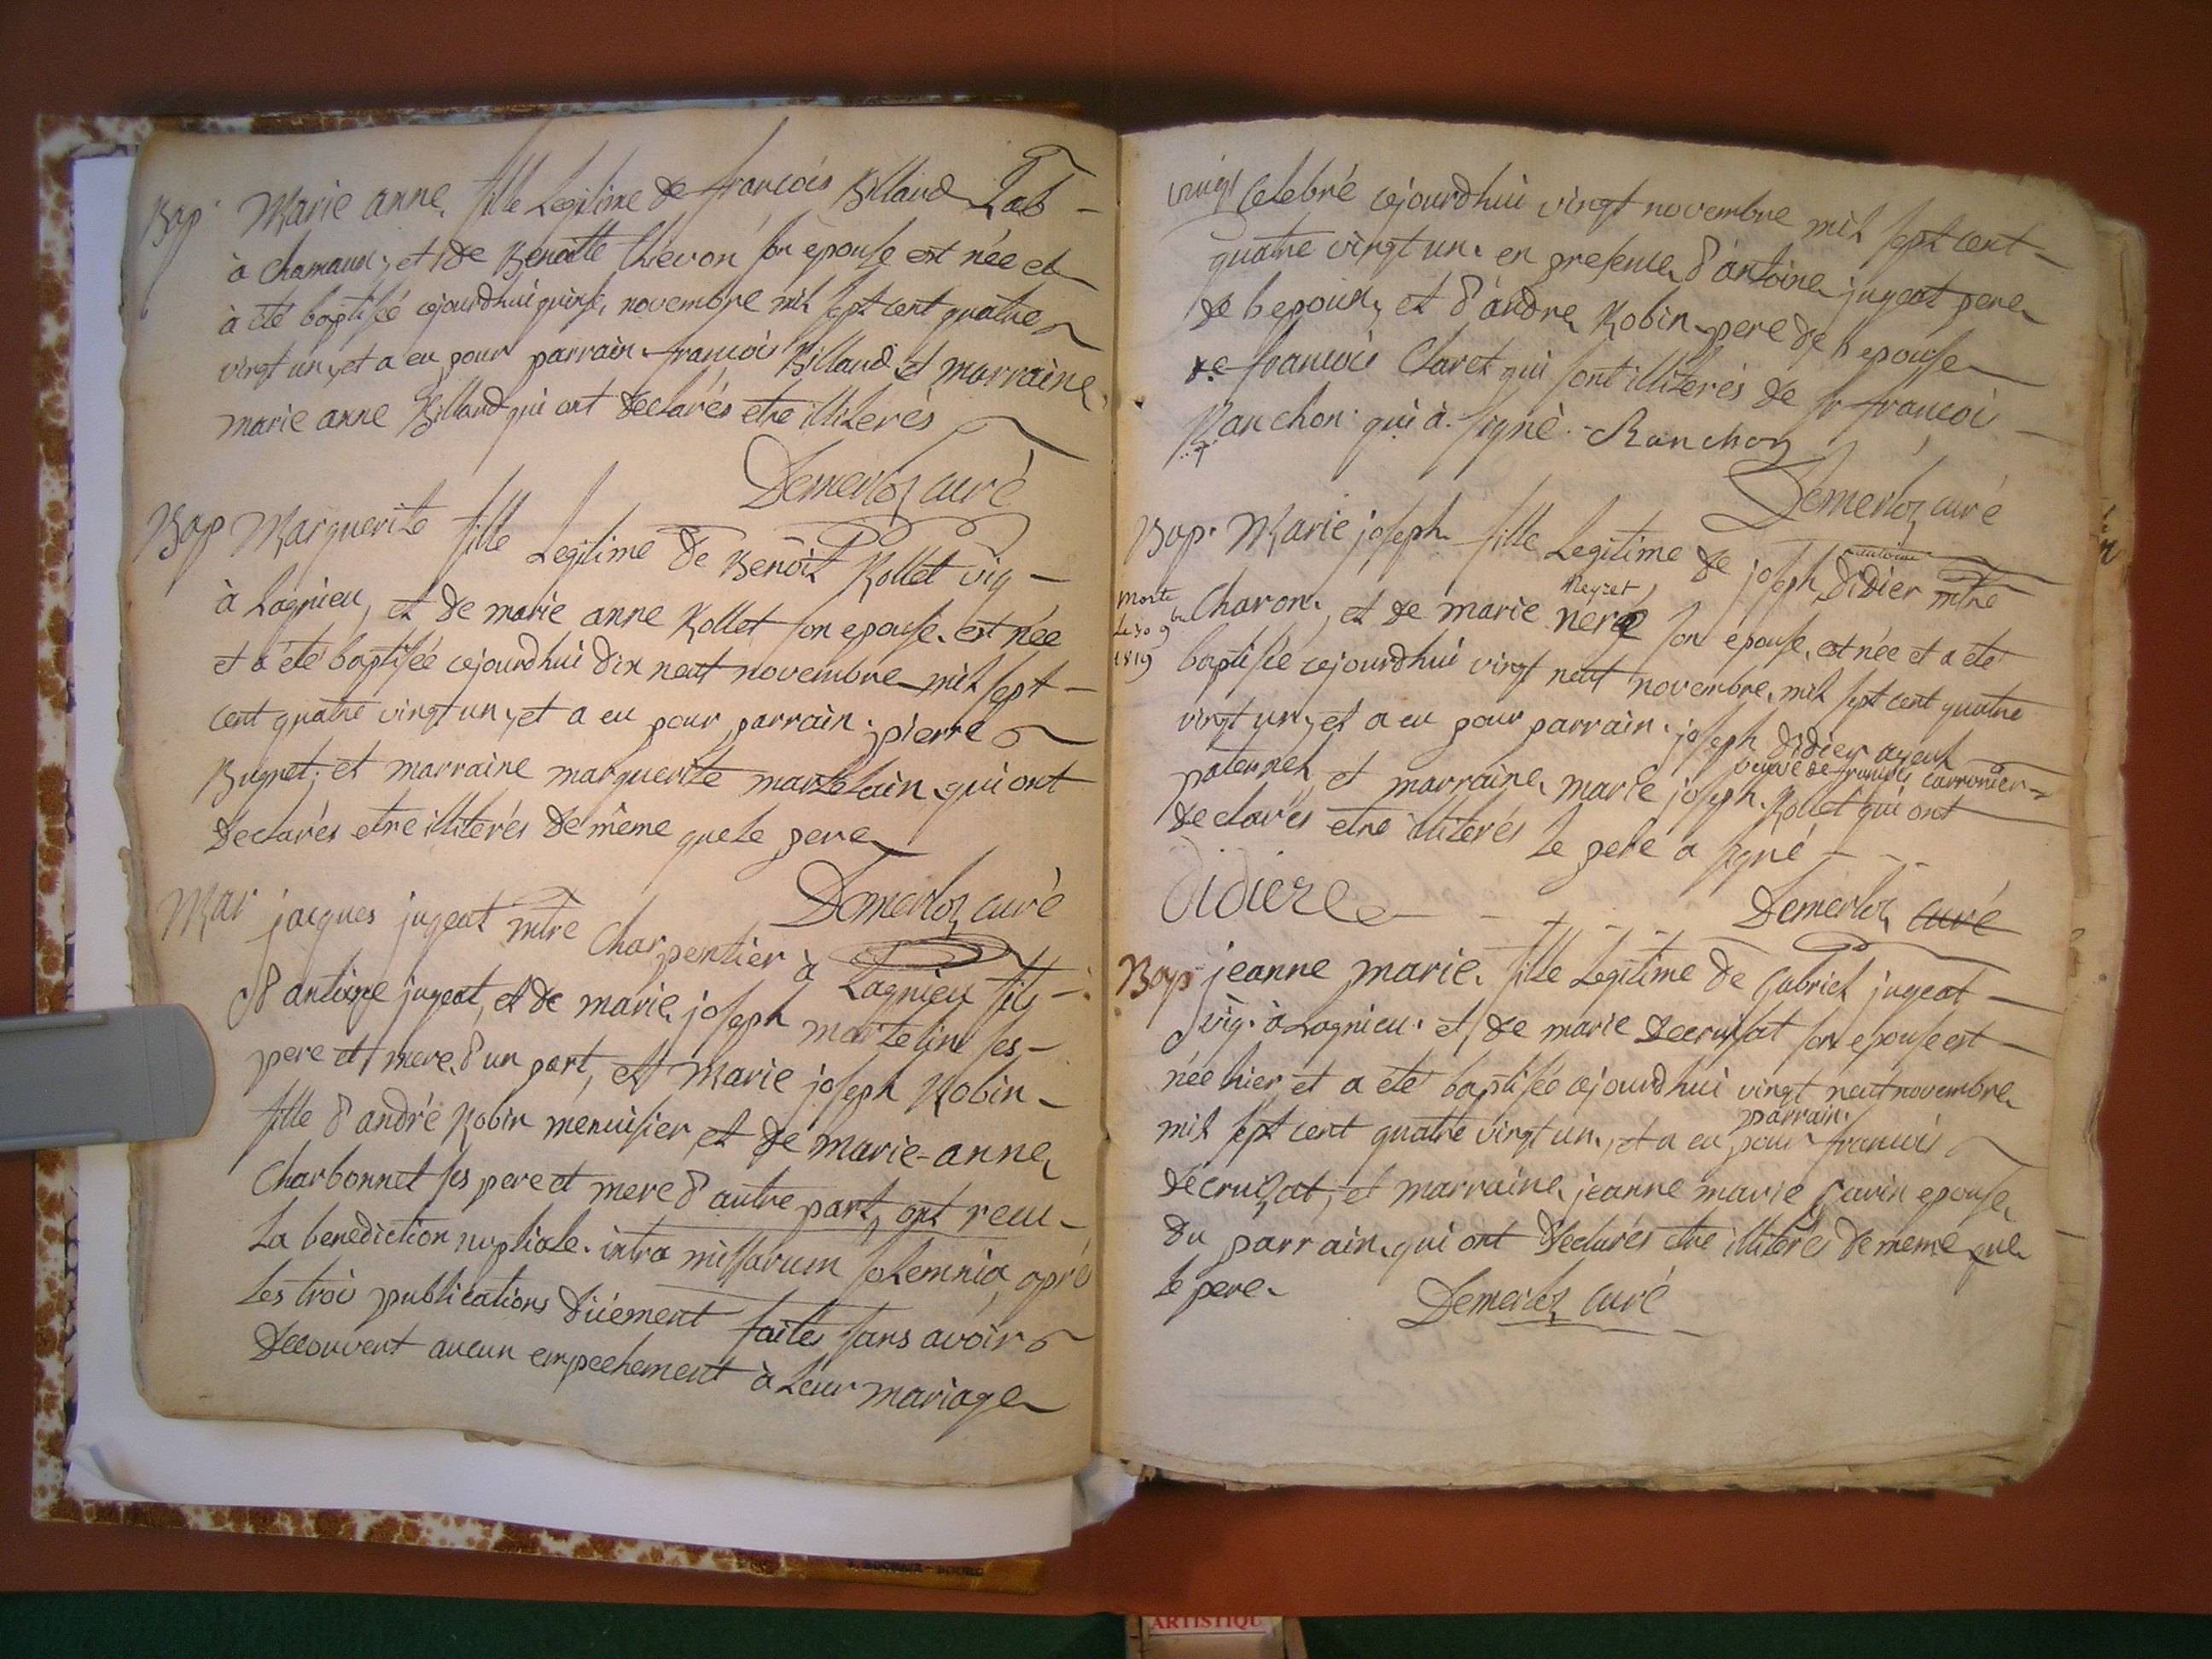 Bap. Marie anne, fille Legitime de francois Billaud Lab-
à chamaux, et de Benoitte thévon son épouse est née et
à été baptisée cejourdhui quinse, novembre mil sept cent quatre
vingt un, et a eu pour parrain francois Billaud et marraine
marie anne Billaud qui ont declarés etre illiterés
Demerloz curé
Bap Marguerite fille Legitime de Benoit Rollet vig-
à Lagnieu, et de marie anne Rollet son epouse, est née
et a été baptisée cejourdhui dix neuf novembre mil sept-
cent quatre vingt un, et a eu pour parrain pierre
Bugnet, et marraine marguerite martelain, qui ont
declarés etre illiterés de même que le pere
Demerloz curé
Mar jacques jugeat mtre Charpentier à Lagnieu fils-
d'antoine jugeat, et de marie joseph marteline ses-
pere et mere, d'un part, et Marie joseph Robin-
fille d'andré Robin menuisier et de marie-anne
Charbonnet ses pere et mere d'autre part, ont recu-
La benediction nuptiale intra missarum solemnia, apré
Les trois publications düement faites sans avoir
decouvert aucun empechement à Leur mariage
vingt Celebré cejourdhui vingt novembre mil sept cent-
quatre vingt un, en presence d'antoine jugeat pere
de l'epoux, et d'andre Robin pere de l'epouse
de francois Claret qui sont illiterés de sr francois-
Ranchon qui à signé. Ranchon
Demerloz curé
Bap. Marie joseph fille Legitime de joseph didier mtre
Charon, et de marie neré son epouse, est née et a été
Neyret
morte
Le 30 9bre
1819
baptisée cejourdhui vingt neuf novembre, mil sept cent quatre
vingt un, et a eu pour parrain joseph didier ayeul
paternel, et marraine, marie joseph Rollet qui ont
veuve de francois carronier
declarés etre illiterés Le pere a signé
didiere
Demerloz curé
Bap jeanne marie, fille Legitime de Gabriel jugeat-
vig. à Lagnieu, et de marie Decruisat son epouse est-
née hier, et a été baptisée cejourdhui vingt neuf novembre
mil sept cent quatre vingt un, et a eu pour francois
parrain
decruizat, et marraine, jeanne marie Savin epouse
du parrain, qui ont declarés etre illiterés de meme que
le pere.
Demerloz curé
ARTISTIQU